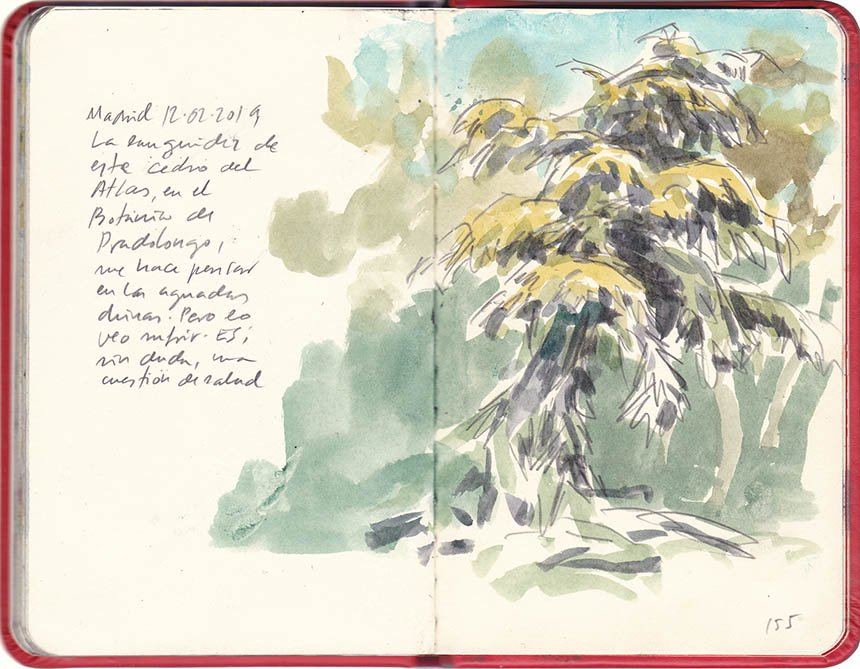 Madrid 12·02·2019
La languidez de
este cedro del
Atlas, en el
Botánico de
Pradolongo,
me hace pensar
en las aguadas
chinas. Pero lo
veo sufrir. Es,
sin duda, una
cuestión de salud
155